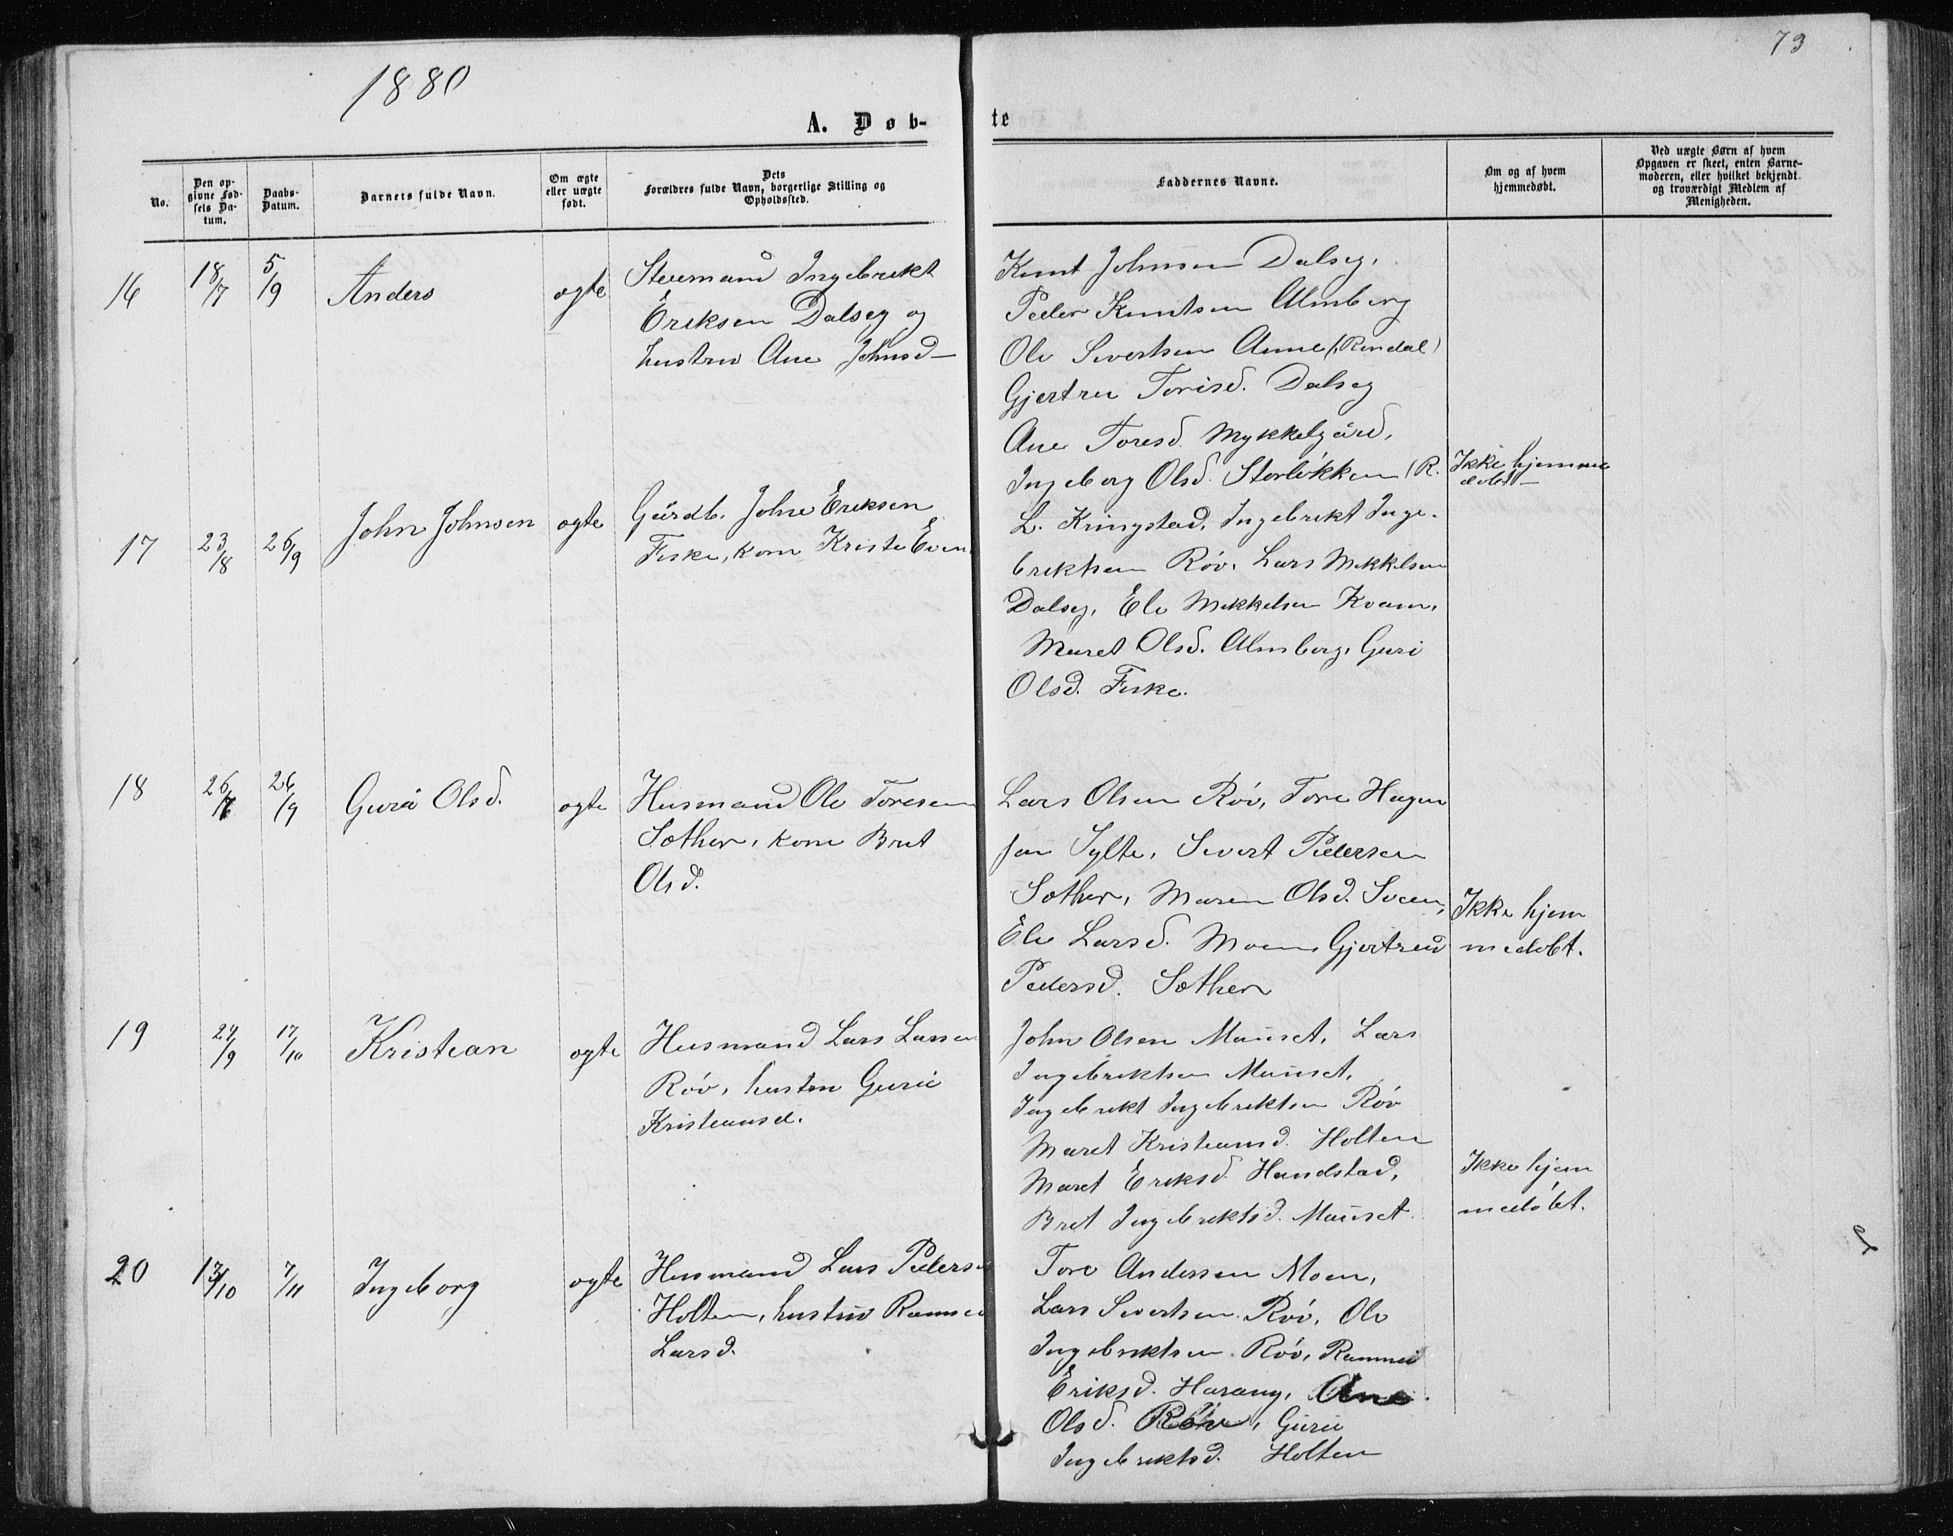 73
1880
A. Døb-
te
No.
Den op-
givne Fød-
sels Da-
tum.
Daabs-
Datum.
Barnets fulde Navn.
Om ægte
eller uægte
født.
Dets
Forældres fulde Navn, borgerlige Stilling og
Opholdssted.
Faddernes Navne.
Om og af hvem
hjemmedøbt.
Ved uægte Børn af hvem
Opgaven er skeet, enten Barne-
moderen, eller hvilket bekjendt
og troværdigt Medlem af
Menigheden.
16 18/7 5/9 Anders ægte
Stuemand Ingebrikt
Eriksen Dalseg og
hustru Ane Johnsd
Knut Johnsen Dalseg,
Peder Knutsen Almberg
Ole Sivertsen Aune (Rindal)
Gjertru Torisd. Dalseg
Ane Toresd. Mykkelgård,
Ingeborg Olsd. Storløkken (R.
Ikke hjemme
døbt
17 23/8 26/9 John Johnsen ægte
Gårdb. John Eriksen
Fiske, kone Kristi Even
L. Kringstad, Ingebrikt Inge-
briktsen Røv, Lars Mikkelsen
Dalseg, Ele Mikkelsen Kvam,
Maret Olsd. Almberg, Guri
Olsd. Fiske.
18 26/7 26/9 Guri Olsd. ægte
Husmand Ole Toresen
Sæther, kone Brit
Olsd.
Lars Olsen Røv, Tore Hagen
Jon Sylte, Sivert Pedersen
Sæther, Maren Olsd. Sveen,
Eli Larsd. Moen, Gjertrud
Pedersd. Sæther
Ikke hjem
medøbt.
19 24/9 17/10 Kristian ægte
Husmand Lars Larsen
Røv, hustru Guri
Kristiansd.
John Olsen Mauset, Lars
Ingebriktsen Mauset,
Ingebrikt Ingebriktsen Røv
Maret Kristiansd. Holten
Maret Eriksd. Handstad,
Brit Ingebriktsd. Mauset.
Ikke hjem
medøbt.
20 13/10 7/11 Ingeborg ægte
Husmand Lars Peders
Holten, hustru Ramnei
Larsd.
Tore Andersen Moen,
Lars Sivertsen Røv, Ole
Ingebriktsen Røv, Ramnei
Eriksd. Harang, Ane
Olsd. Røv, Guri
Ingebriktsd. Holten